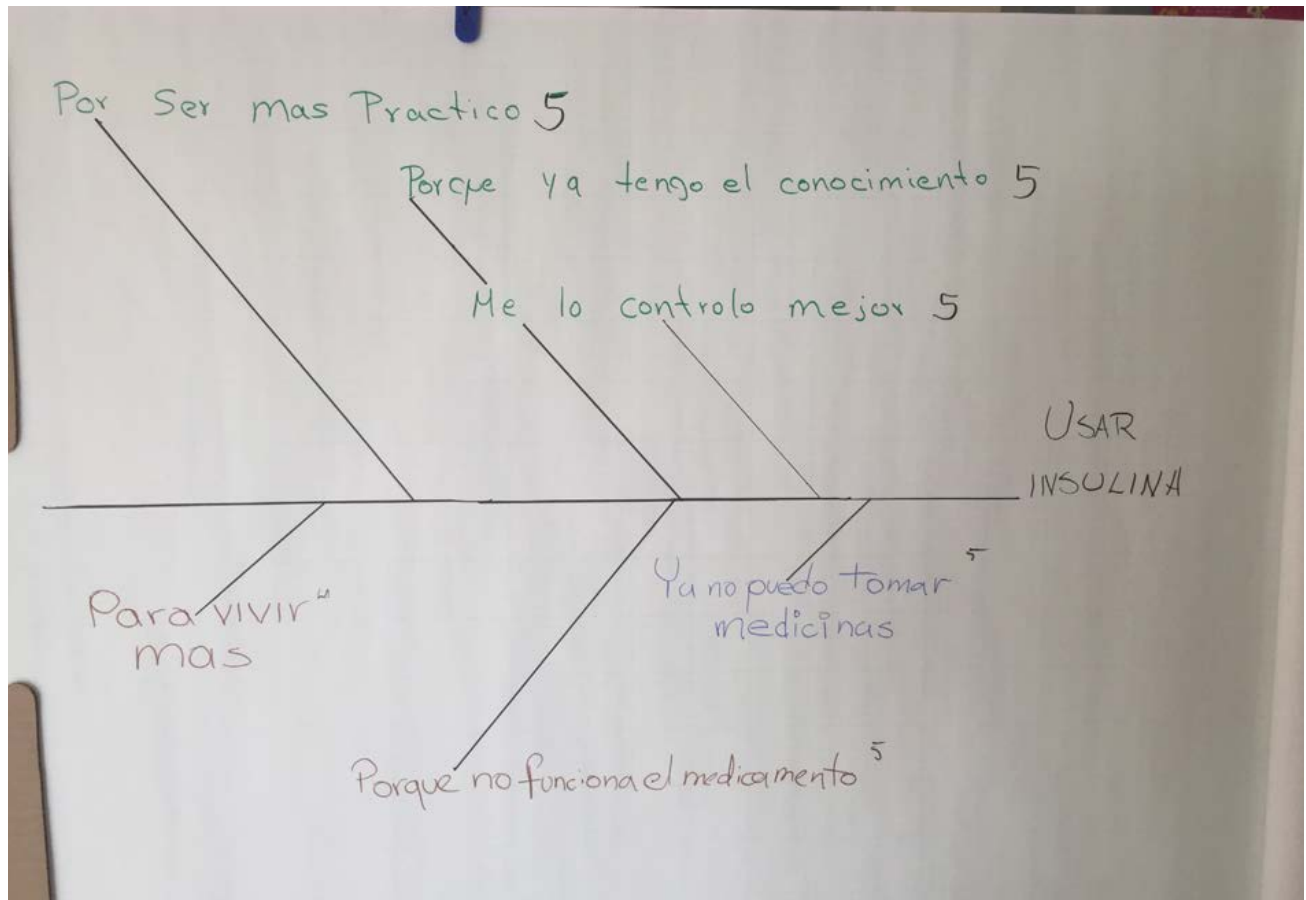 Por Ser mas Practico 5
Porque ya tengo el conocimiento 5
Me lo controlo mejor 5
USAR
INSULINA
Para vivir 5
mas
Ya no puedo tomar 5
medicinas
Porque no funciona el medicamento 5